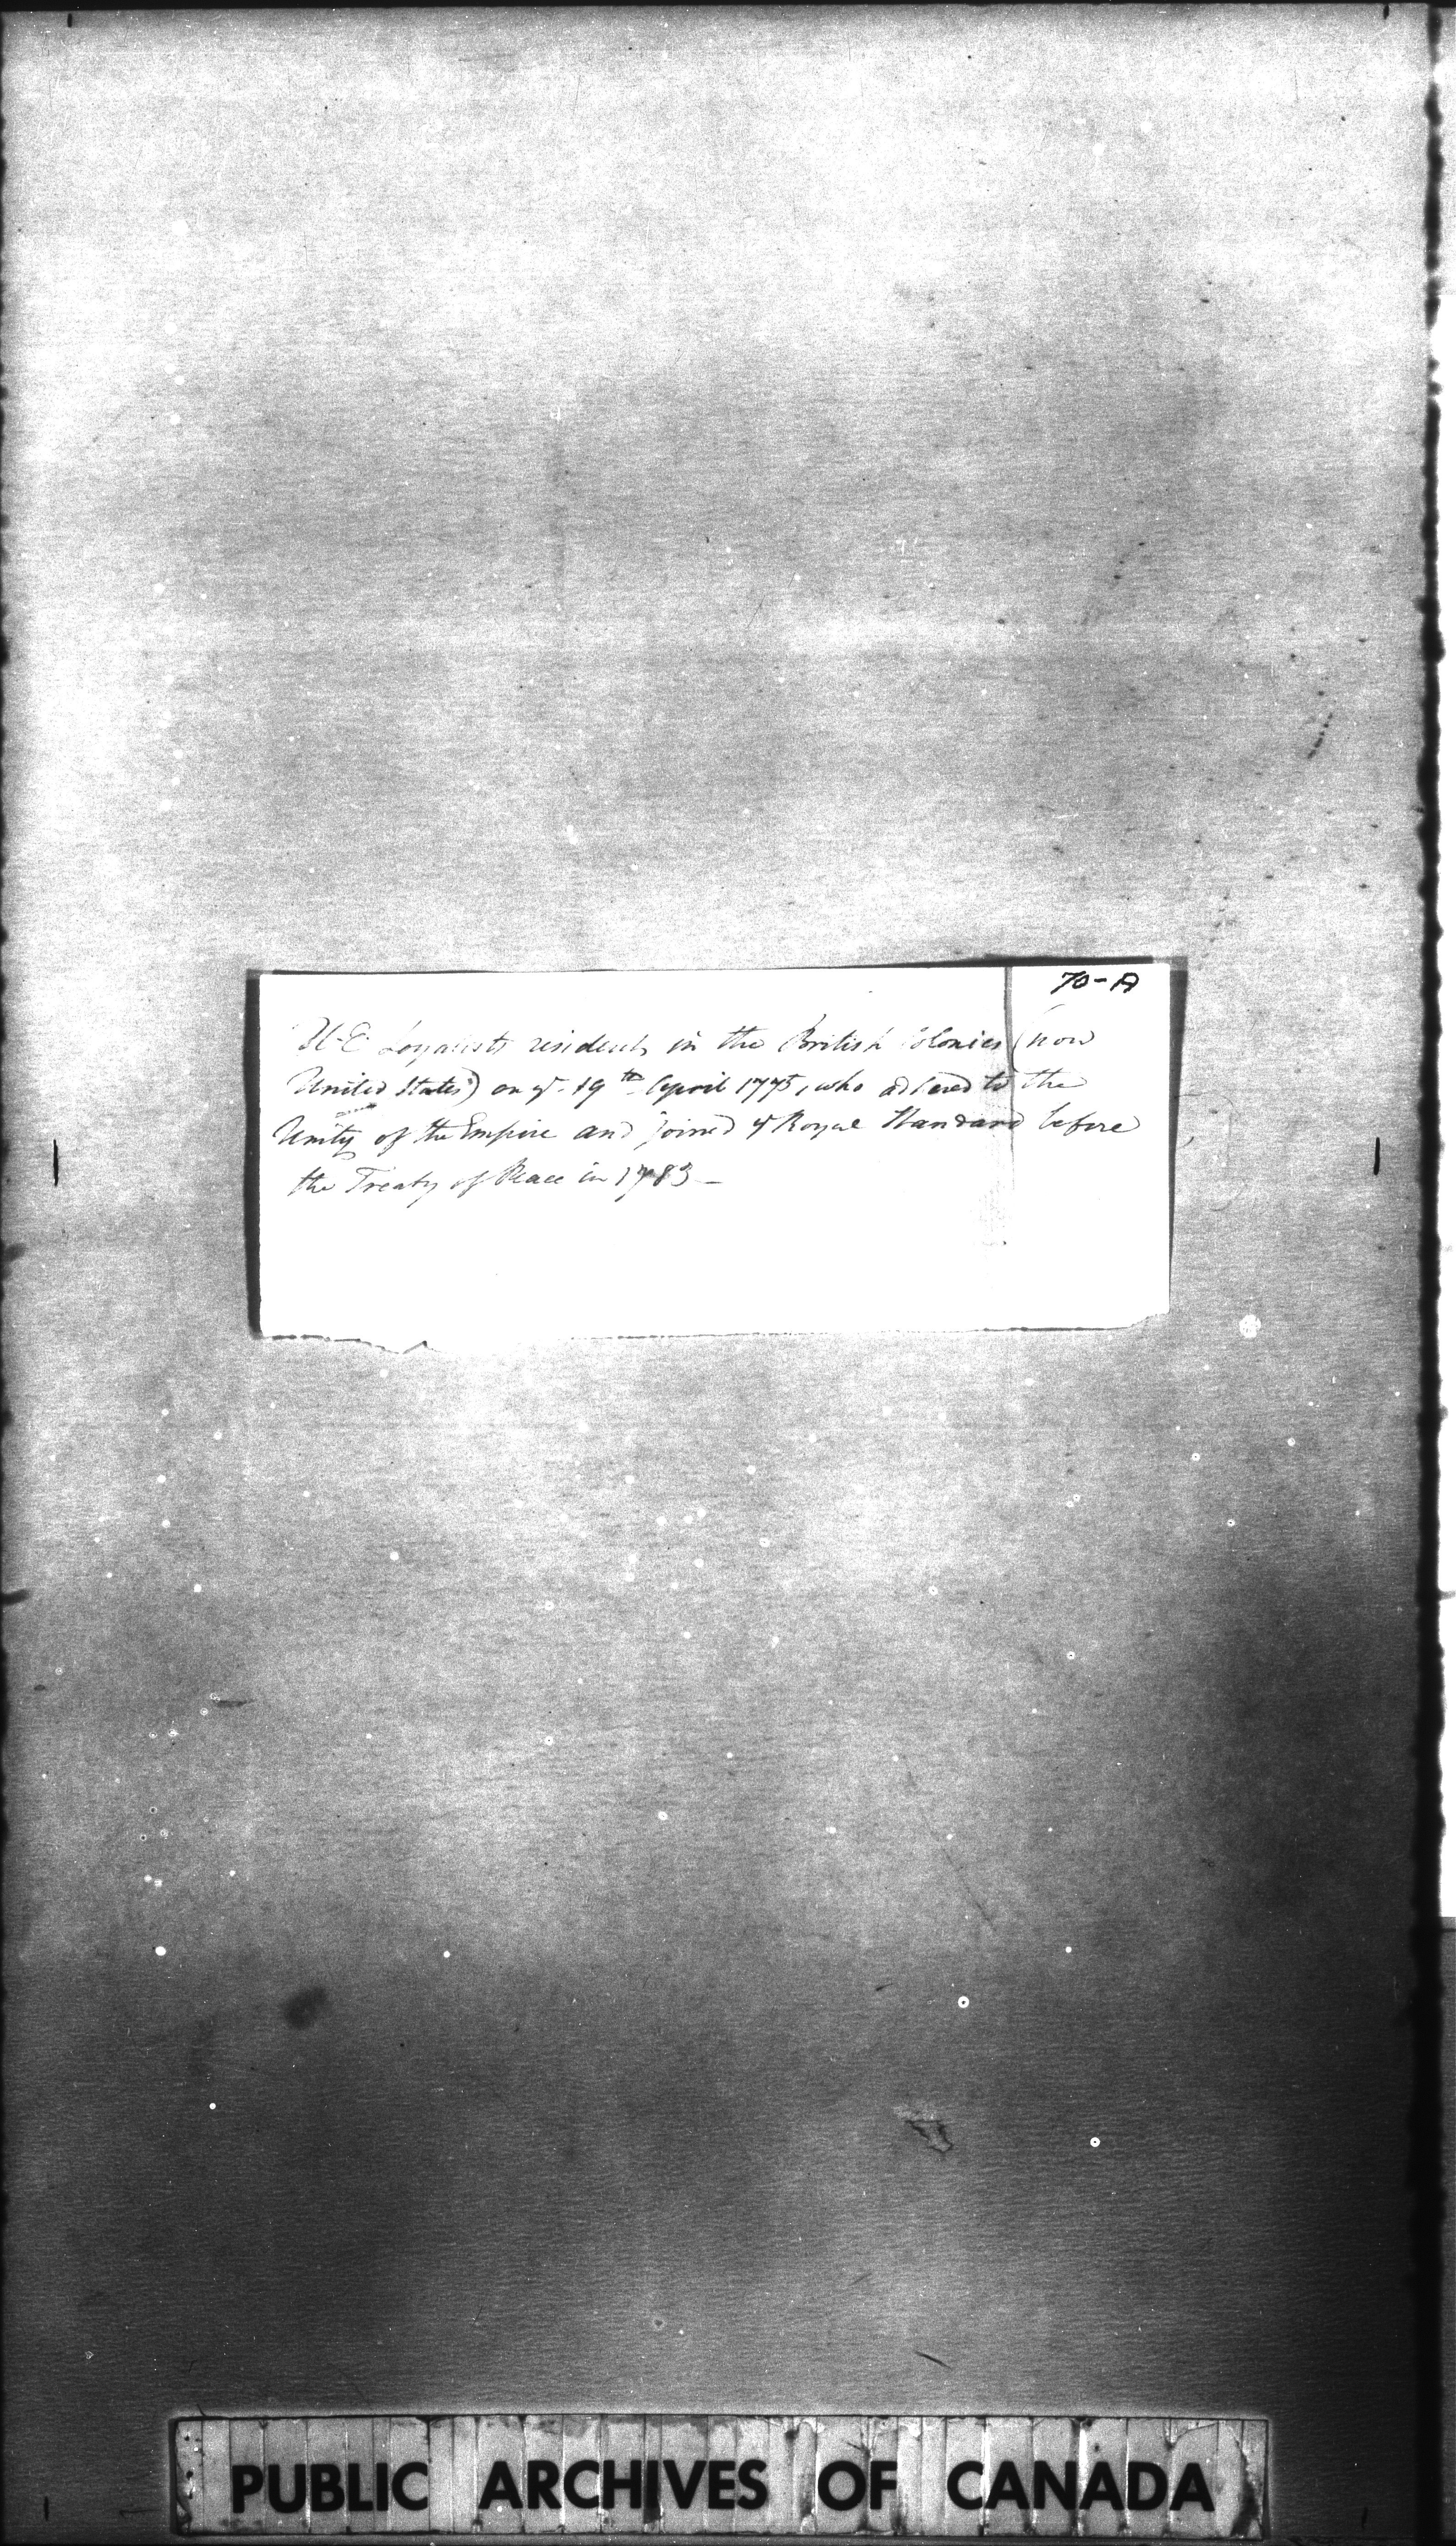 70-A
U-E Loyalists residents in the British Colonies (now
United States) on ye 19th April 1775, who adhered to the
Unity of the Empire and joined ye Royal Standard before
the Treaty of Peace in 1783 —
PUBLIC ARCHIVES OF CANADA